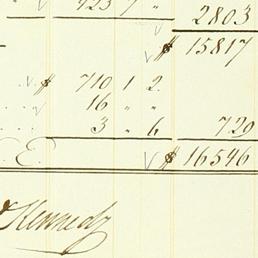 423 7 " 2803
$ 15817
$ 710 1 2.
16 " "
3 " 6 729
E. $ 16546
Kennedy